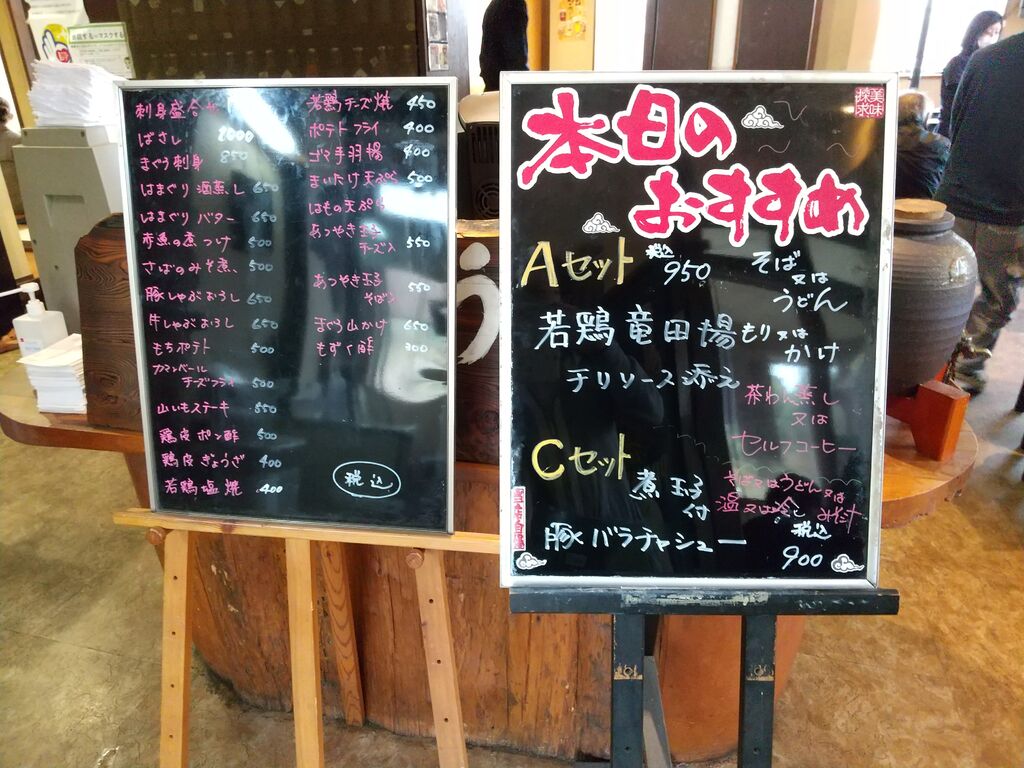 刺身盛合せ
ばさし 2000
まぐろ刺身 850
はまぐり 酒蒸し 650
はまぐり バター 650
赤魚の煮つけ 500
さばのみそ煮、 500
豚しゃぶおろし 650
牛しゃぶおろし 650
もちポテト 500
カマンベール
チーズフライ 500
山いもステーキ 550
鶏皮ポン酢 500
鶏皮ぎょうざ 400
若鶏塩焼 400
若鶏チーズ焼 450
ポテトフライ 400
ゴマ手羽揚 400
まいたけ天ぷら 500
はもの天ぷら
あつやき玉子
チーズ入 550
あつやき玉子
そば入 550
まぐろ山かけ 650
もずく酢 300
税込
本日の
おすすめ
美味
探求
Aセット 税込 950
そば
又は
うどん
若鶏竜田揚 もり又は
かけ
チリソース添え
茶わん蒸し
又は
セルフコーヒー
Cセット
煮玉子
付
そば又はうどん又は
温又は冷し
豚バラチャシュー
税込
900
う